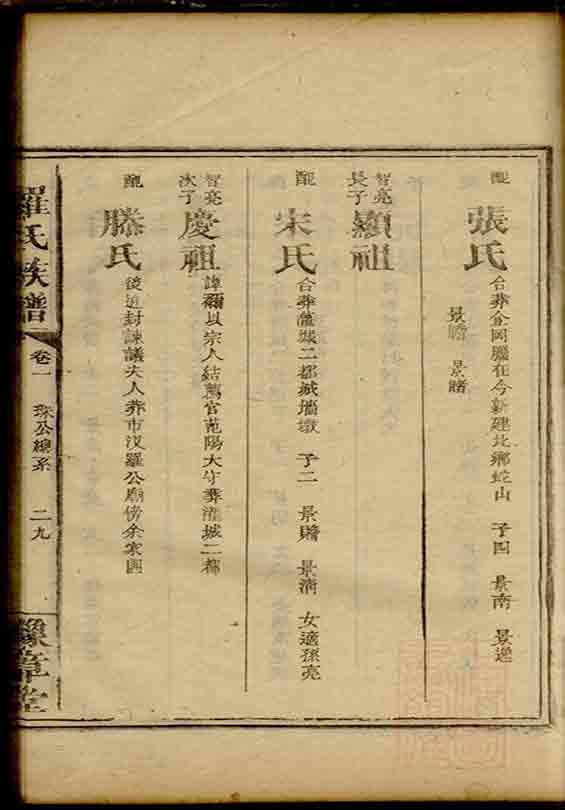 配
張氏
合葬金岡腦在今新建北鄉蛇山 子四 景南 景遥
景瞻 景睹
智亮長子
顯祖
配
宋氏
合葬灌城二都城墻墩 子二 景贍 景清 女適孫亮
智亮次子
慶祖
諱爾以宗人結薦官范陽大守葬灌城二都
配
滕氏
後追封諫議夫人葬市汊羅公廟傍余家園
羅氏族譜
卷一
珠公總系
二九
豫章堂